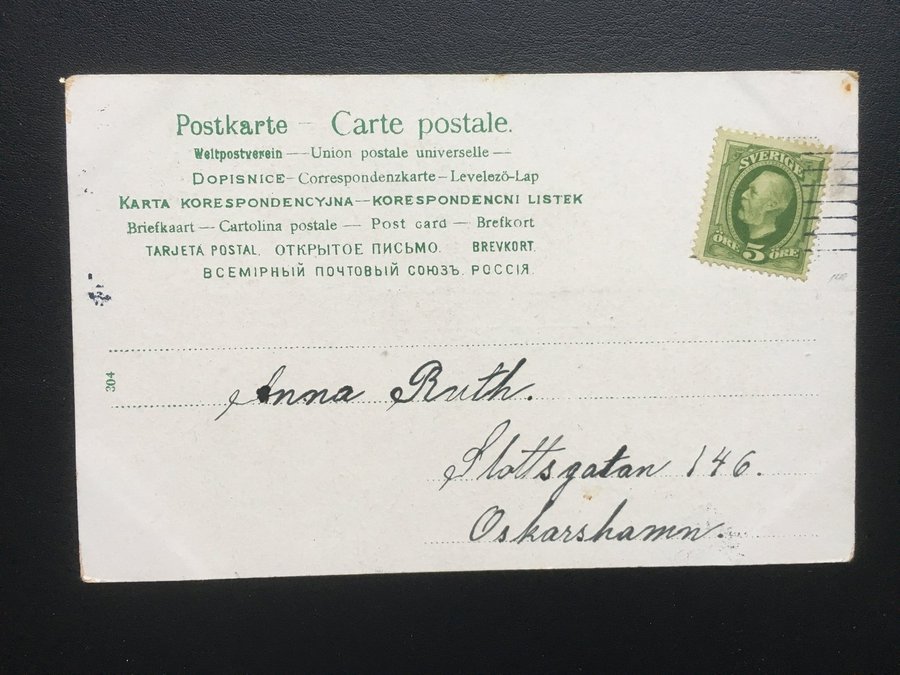 Postkarte — Carte postale.
Weltpostverein — Union postale universelle —
DOPISNICE – Correspondenzkarte – Levelező-Lap
KARTA KORESPONDENCYJNA — KORESPONDENCNI LISTEK
Briefkaart — Cartolina postale — Post card — Brefkort
TARJETA POSTAL. ОТКРЫТОЕ ПИСЬМО. BREVKORT.
ВСЕМІРНЫЙ ПОЧТОВЫЙ СОЮЗЪ. РОССІЯ.
SVERIGE
ÖRE 5 ÖRE
304
Anna Ruth.
Slottsgatan 146.
Oskarshamn.